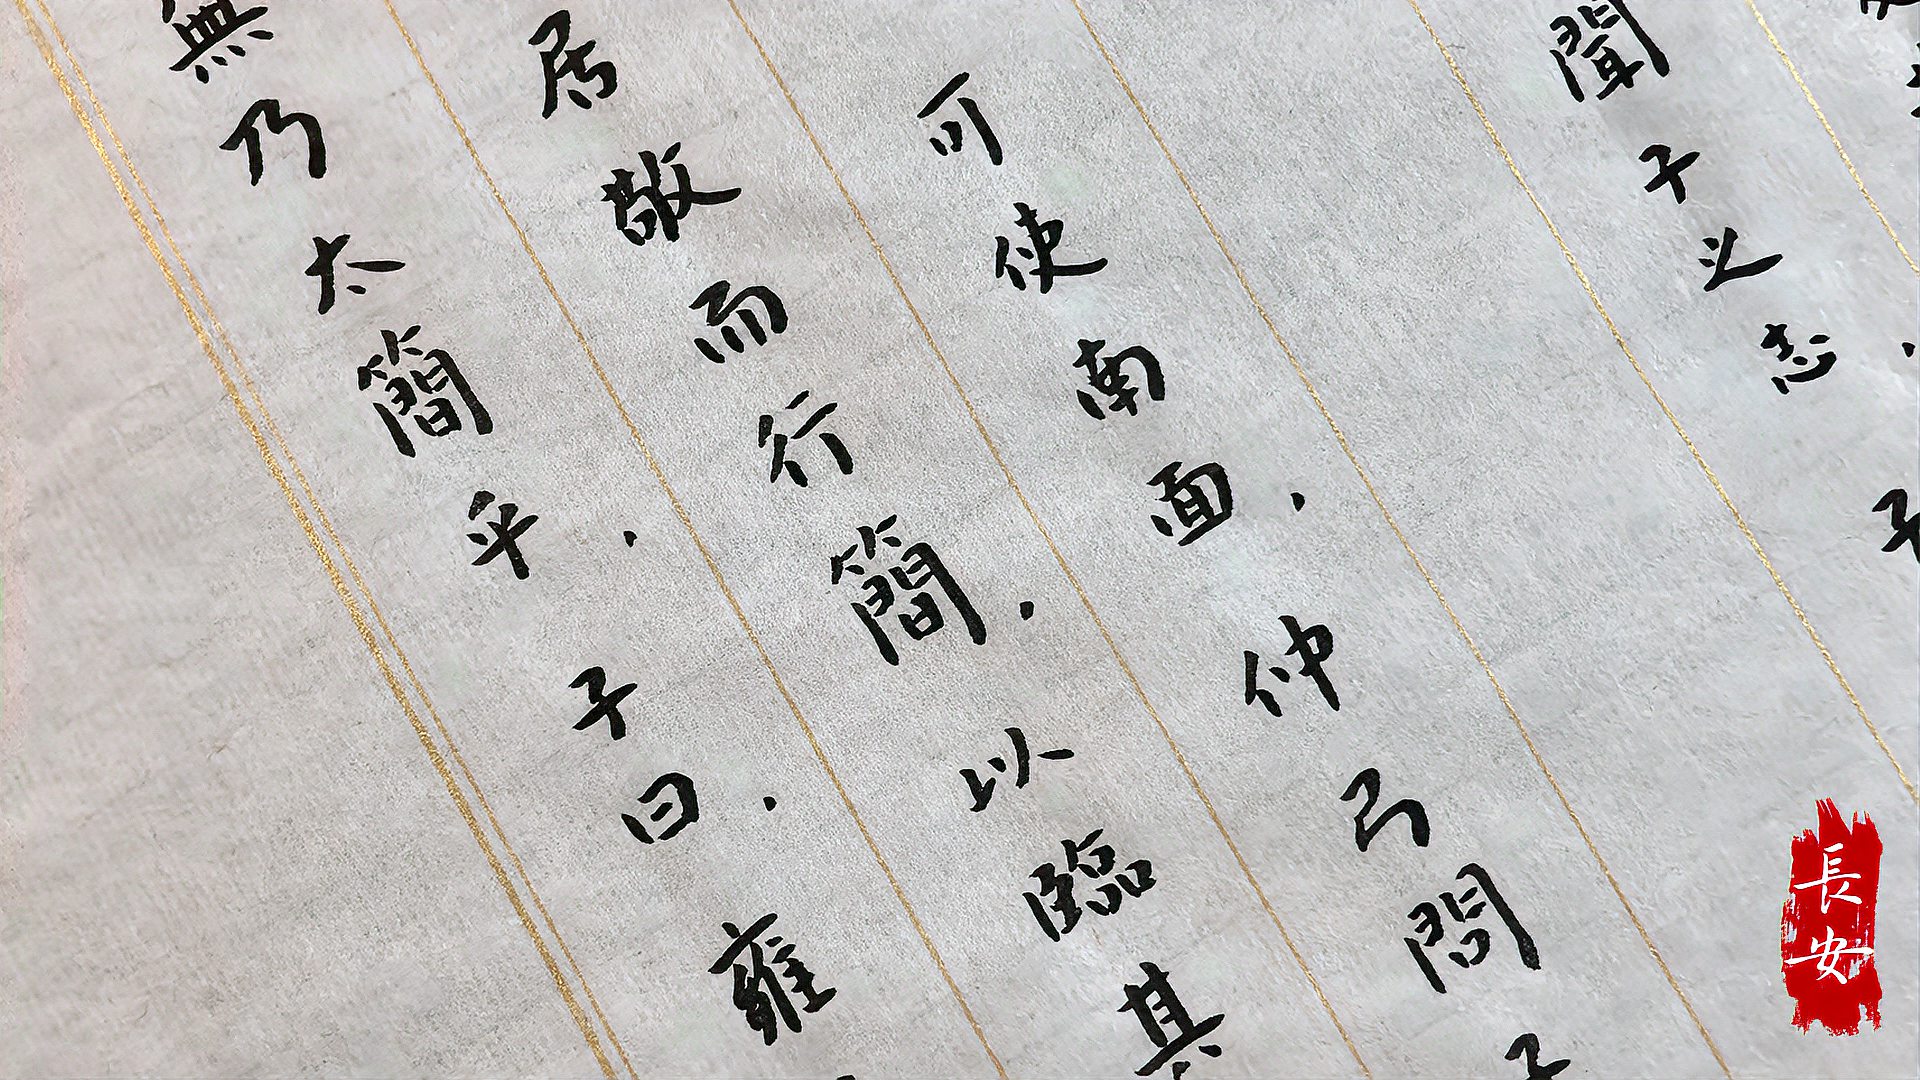 子
聞子之志.
可使南面.仲弓問子
居敬而行簡.以臨其
無乃太簡乎.子曰.雍
長安